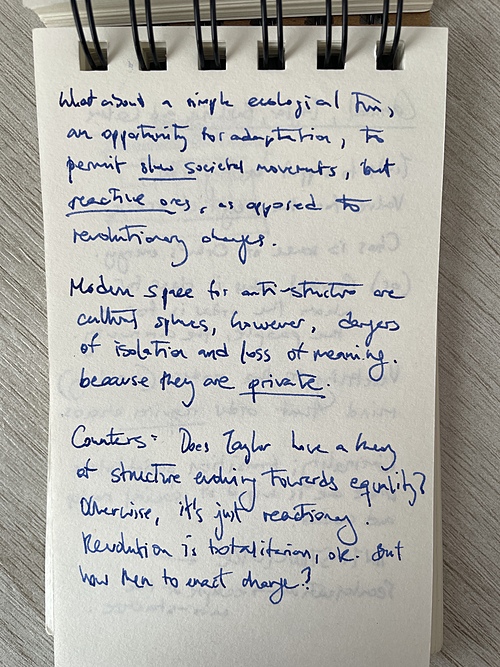 What about a simple ecological
an opportunity for adaptation, to
permit slow societal movements, but
reactive ones, as opposed to
revolutionary changes.
Modern space for anti-structure are
cultural spheres, however, dangers
of isolation and loss of meaning.
because they are private.
Counters: Does Taylor have a theory
of structure evolving towards equality?
Otherwise, it's just reactionary.
Revolution is totalitarian, ok. But
how then to enact change?